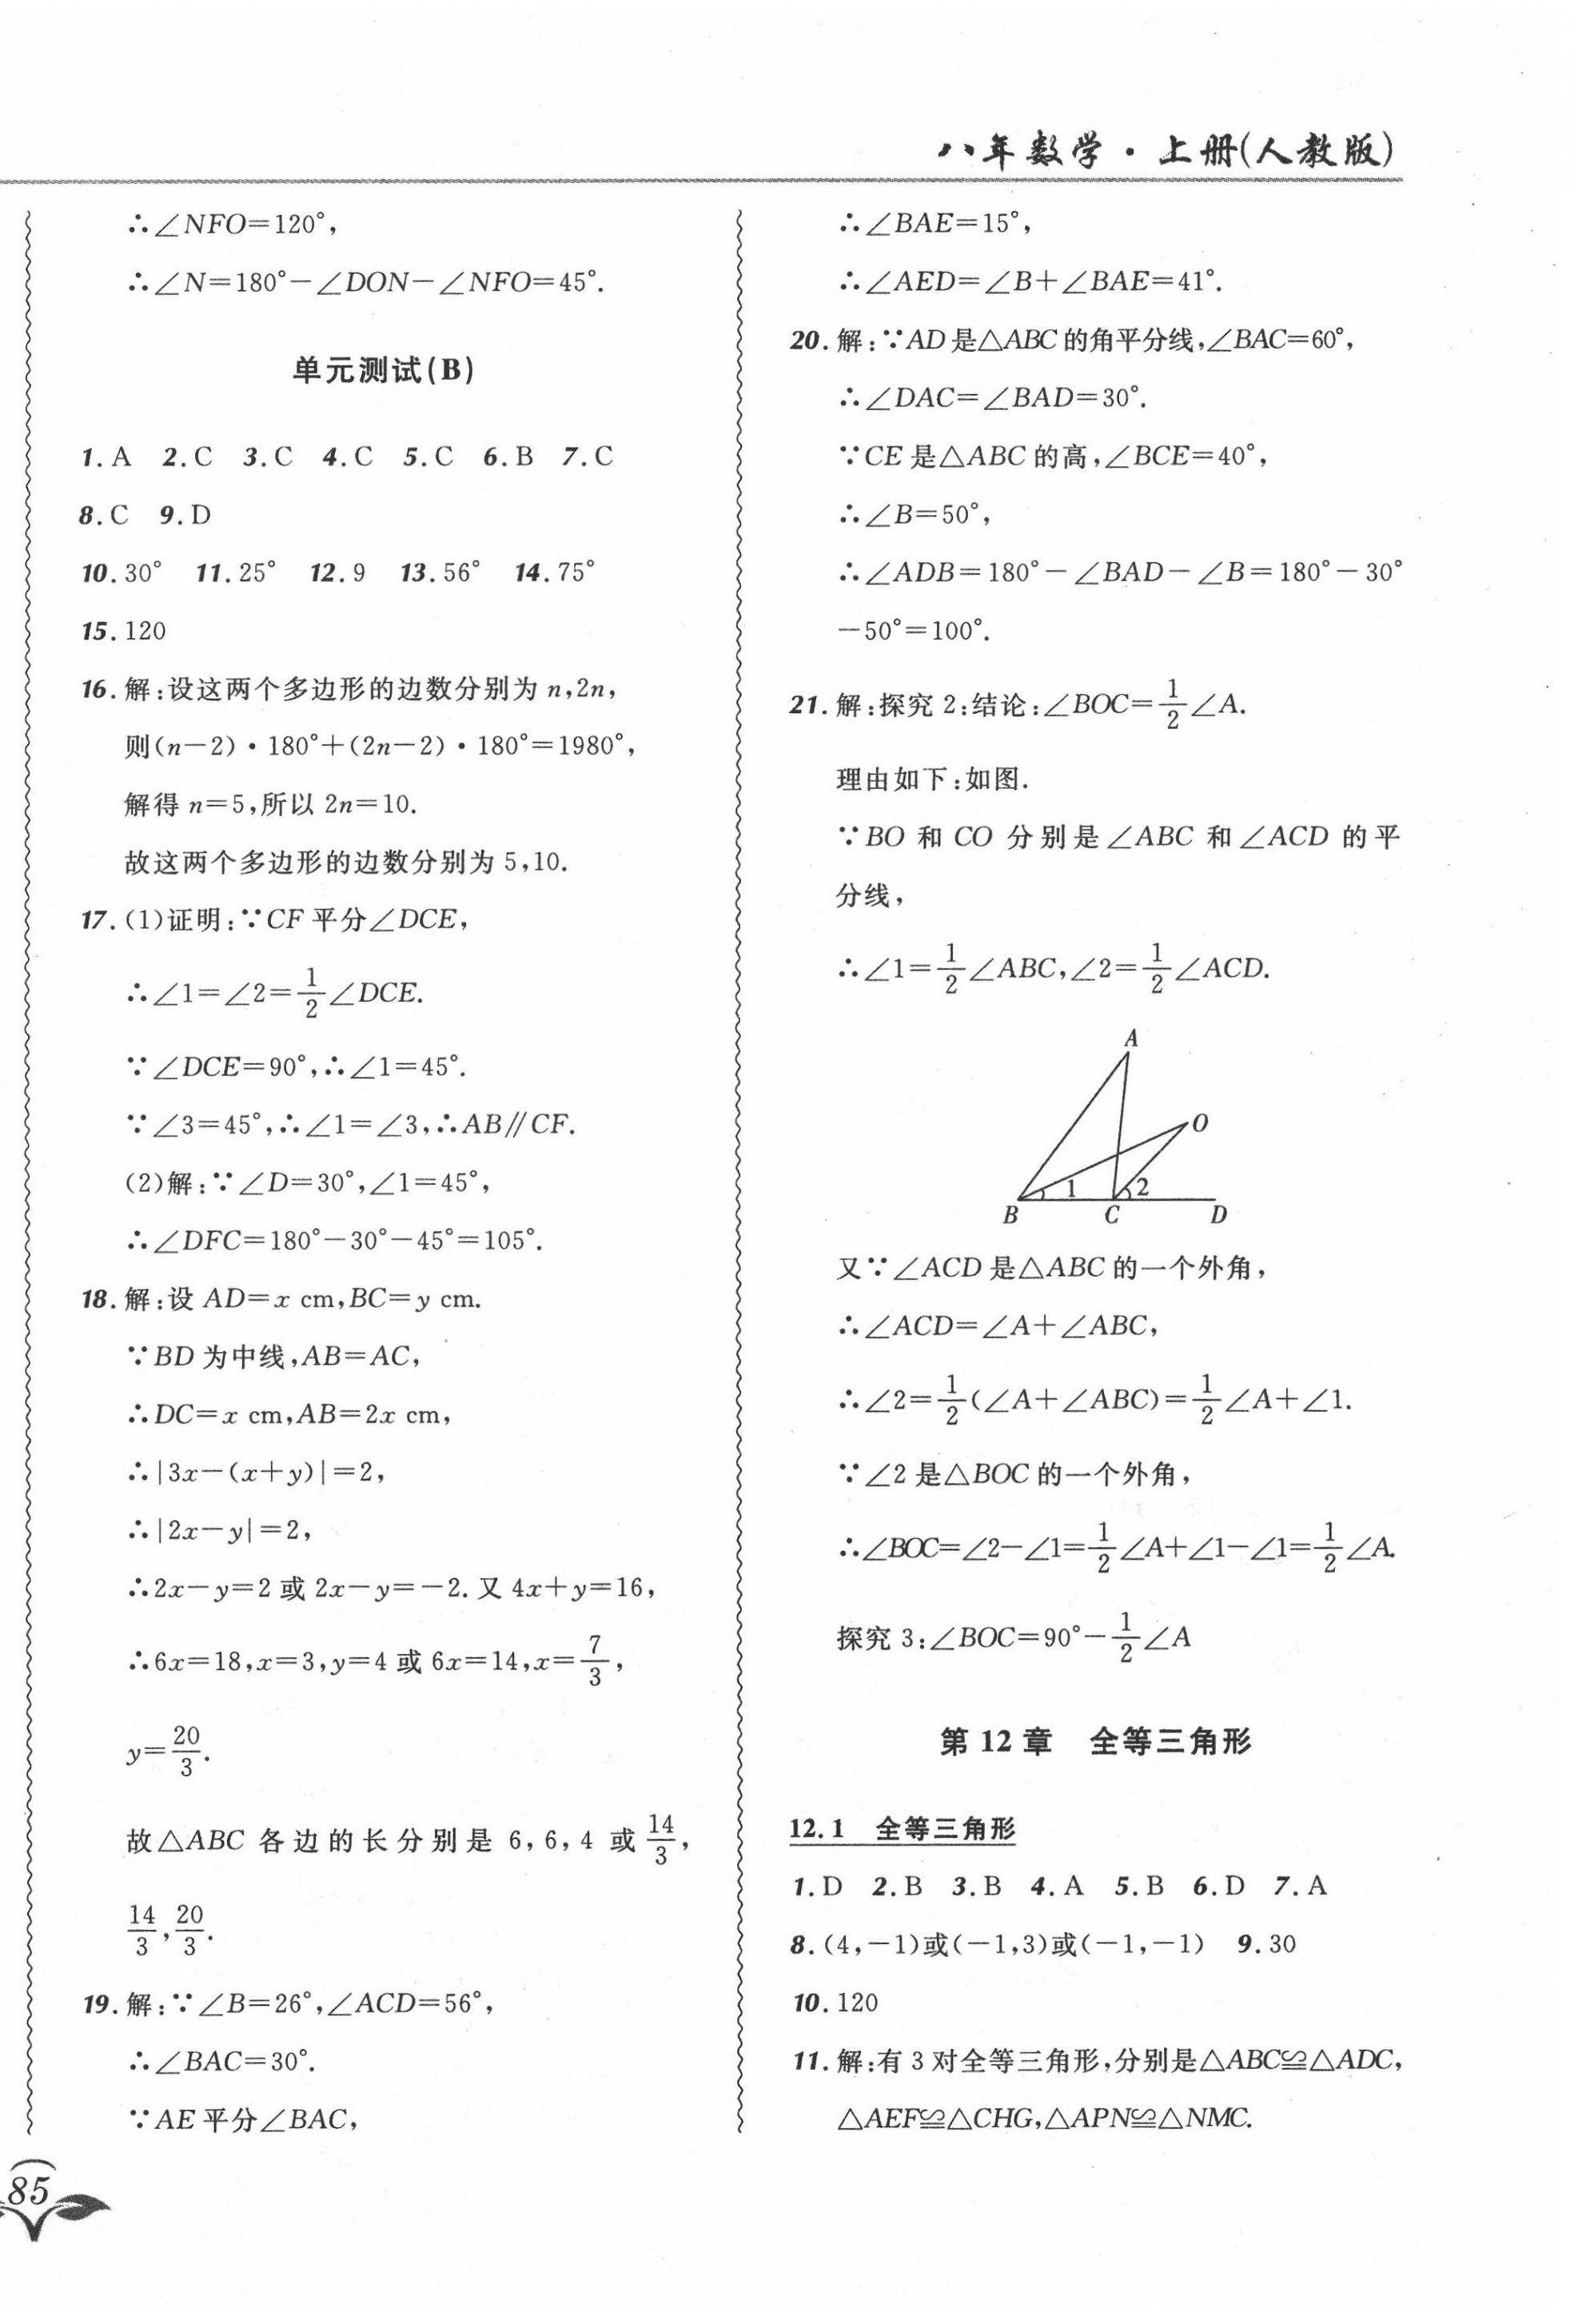 八年数学·上册(人教版)
∴∠NFO=120°,
∴∠N=180°-∠DON-∠NFO=45°.
单元测试(B)
1.A 2.C 3.C 4.C 5.C 6.B 7.C
8.C 9.D
10.30° 11.25° 12.9 13.56° 14.75°
15.120
16.解:设这两个多边形的边数分别为 n,2n,
则(n-2)·180°+(2n-2)·180°=1980°,
解得 n=5,所以 2n=10.
故这两个多边形的边数分别为 5,10.
17.(1)证明:∵CF 平分∠DCE,
∴∠1=∠2=1/2∠DCE.
∵∠DCE=90°,∴∠1=45°.
∵∠3=45°,∴∠1=∠3,∴AB∥CF.
(2)解:∵∠D=30°,∠1=45°,
∴∠DFC=180°-30°-45°=105°.
18.解:设 AD=x cm,BC=y cm.
∵BD 为中线,AB=AC,
∴DC=x cm,AB=2x cm,
∴|3x-(x+y)|=2,
∴|2x-y|=2,
∴2x-y=2 或 2x-y=-2.又 4x+y=16,
∴6x=18,x=3,y=4 或 6x=14,x=7/3,
y=20/3.
故△ABC 各边的长分别是 6,6,4 或 14/3,
14/3,20/3.
19.解:∵∠B=26°,∠ACD=56°,
∴∠BAC=30°.
∵AE 平分∠BAC,
∴∠BAE=15°,
∴∠AED=∠B+∠BAE=41°.
20.解:∵AD 是△ABC 的角平分线,∠BAC=60°,
∴∠DAC=∠BAD=30°.
∵CE 是△ABC 的高,∠BCE=40°,
∴∠B=50°,
∴∠ADB=180°-∠BAD-∠B=180°-30°
-50°=100°.
21.解:探究 2:结论:∠BOC=1/2∠A.
理由如下:如图.
∵BO 和 CO 分别是∠ABC 和∠ACD 的平
分线,
∴∠1=1/2∠ABC,∠2=1/2∠ACD.
A
O
1 2
B C D
又∵∠ACD 是△ABC 的一个外角,
∴∠ACD=∠A+∠ABC,
∴∠2=1/2(∠A+∠ABC)=1/2∠A+∠1.
∵∠2 是△BOC 的一个外角,
∴∠BOC=∠2-∠1=1/2∠A+∠1-∠1=1/2∠A.
探究 3:∠BOC=90°-1/2∠A
第 12 章 全等三角形
12.1 全等三角形
1.D 2.B 3.B 4.A 5.B 6.D 7.A
8.(4,-1)或(-1,3)或(-1,-1) 9.30
10.120
11.解:有 3 对全等三角形,分别是△ABC≌△ADC,
△AEF≌△CHG,△APN≌△NMC.
85